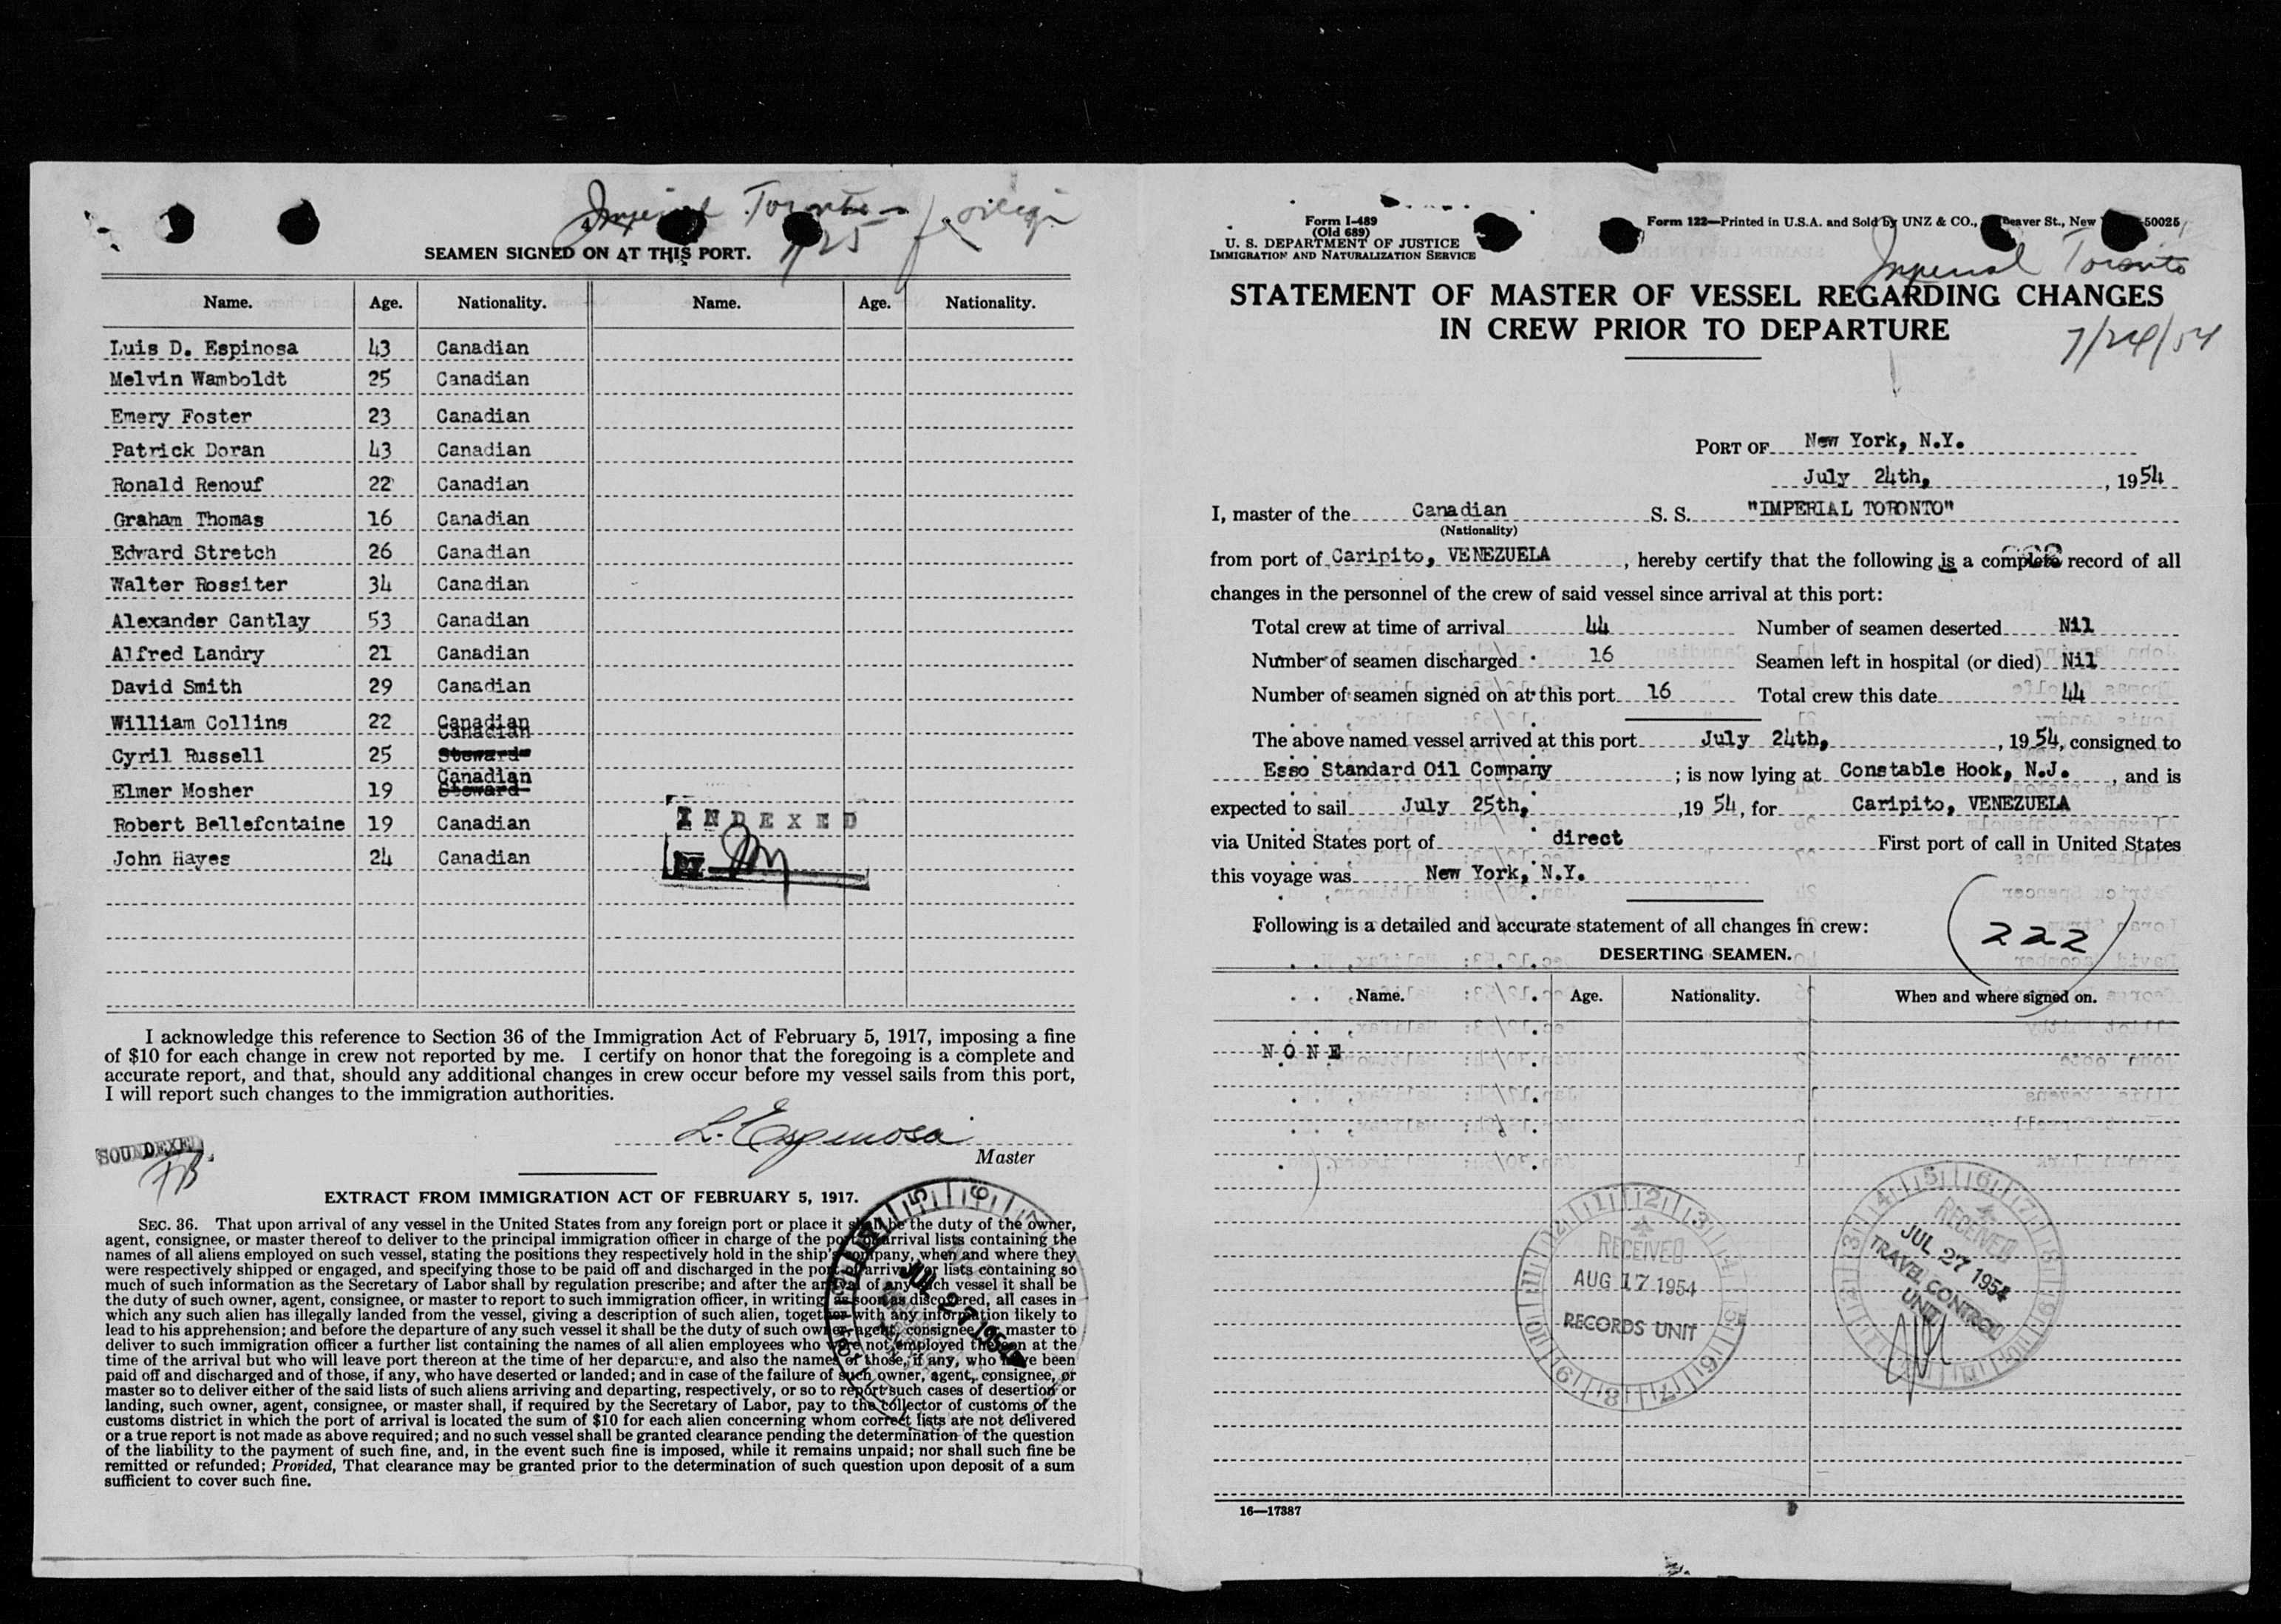 Imperial Toronto
7/25 foreign
SEAMEN SIGNED ON AT THIS PORT.
Name. Age. Nationality. Name. Age. Nationality.
Luis D. Espinosa 43 Canadian
Melvin Wamboldt 25 Canadian
Emery Foster 23 Canadian
Patrick Doran 43 Canadian
Ronald Renouf 22 Canadian
Graham Thomas 16 Canadian
Edward Stretch 26 Canadian
Walter Rossiter 34 Canadian
Alexander Cantlay 53 Canadian
Alfred Landry 21 Canadian
David Smith 29 Canadian
William Collins 22 Canadian
Canadian
Cyril Russell 25 Steward
Canadian
Elmer Mosher 19 Steward
Robert Bellefontaine 19 Canadian
John Hayes 24 Canadian
INDEXED
BY
I acknowledge this reference to Section 36 of the Immigration Act of February 5, 1917, imposing a fine
of $10 for each change in crew not reported by me. I certify on honor that the foregoing is a complete and
accurate report, and that, should any additional changes in crew occur before my vessel sails from this port,
I will report such changes to the immigration authorities.
L. Espinosa
Master
SOUNDEXED
EXTRACT FROM IMMIGRATION ACT OF FEBRUARY 5, 1917.
SEC. 36. That upon arrival of any vessel in the United States from any foreign port or place it shall be the duty of the owner,
agent, consignee, or master thereof to deliver to the principal immigration officer in charge of the port of arrival lists containing the
names of all aliens employed on such vessel, stating the positions they respectively hold in the ship's company, when and where they
were respectively shipped or engaged, and specifying those to be paid off and discharged in the port of arrival or lists containing so
much of such information as the Secretary of Labor shall by regulation prescribe; and after the arrival of any such vessel it shall be
the duty of such owner, agent, consignee, or master to report to such immigration officer, in writing, as soon as discovered, all cases in
which any such alien has illegally landed from the vessel, giving a description of such alien, together with any information likely to
lead to his apprehension; and before the departure of any such vessel it shall be the duty of such owner, agent, consignee, or master to
deliver to such immigration officer a further list containing the names of all alien employees who were not employed thereon at the
time of the arrival but who will leave port thereon at the time of her departure, and also the names of those, if any, who have been
paid off and discharged and of those, if any, who have deserted or landed; and in case of the failure of such owner, agent, consignee, or
master so to deliver either of the said lists of such aliens arriving and departing, respectively, or so to report such cases of desertion or
landing, such owner, agent, consignee, or master shall, if required by the Secretary of Labor, pay to the collector of customs of the
customs district in which the port of arrival is located the sum of $10 for each alien concerning whom correct lists are not delivered
or a true report is not made as above required; and no such vessel shall be granted clearance pending the determination of the question
of the liability to the payment of such fine, and, in the event such fine is imposed, while it remains unpaid; nor shall such fine be
remitted or refunded; Provided, That clearance may be granted prior to the determination of such question upon deposit of a sum
sufficient to cover such fine.
JUL 27 1954
Form I-489
(Old 689)
U. S. DEPARTMENT OF JUSTICE
IMMIGRATION AND NATURALIZATION SERVICE
Form 122—Printed in U.S.A. and Sold by UNZ & CO., Beaver St., New 50025
Imperial Toronto
STATEMENT OF MASTER OF VESSEL REGARDING CHANGES
IN CREW PRIOR TO DEPARTURE
7/24/54
PORT OF New York, N.Y.
July 24th, , 1954
I, master of the Canadian S. S. "IMPERIAL TORONTO"
(Nationality)
from port of Caripito, VENEZUELA , hereby certify that the following is a complete record of all
changes in the personnel of the crew of said vessel since arrival at this port:
Total crew at time of arrival 44 Number of seamen deserted Nil
Number of seamen discharged 16 Seamen left in hospital (or died) Nil
Number of seamen signed on at this port 16 Total crew this date 44
The above named vessel arrived at this port July 24th, , 1954, consigned to
Esso Standard Oil Company ; is now lying at Constable Hook, N.J. , and is
expected to sail July 25th, ,19 54, for Caripito, VENEZUELA
via United States port of direct First port of call in United States
this voyage was New York, N.Y.
Following is a detailed and accurate statement of all changes in crew:
(222)
DESERTING SEAMEN.
Name. Age. Nationality. When and where signed on.
NONE
RECEIVED
AUG 17 1954
RECORDS UNIT
RECEIVED
JUL 27 1954
TRAVEL CONTROL
UNIT
16—17387